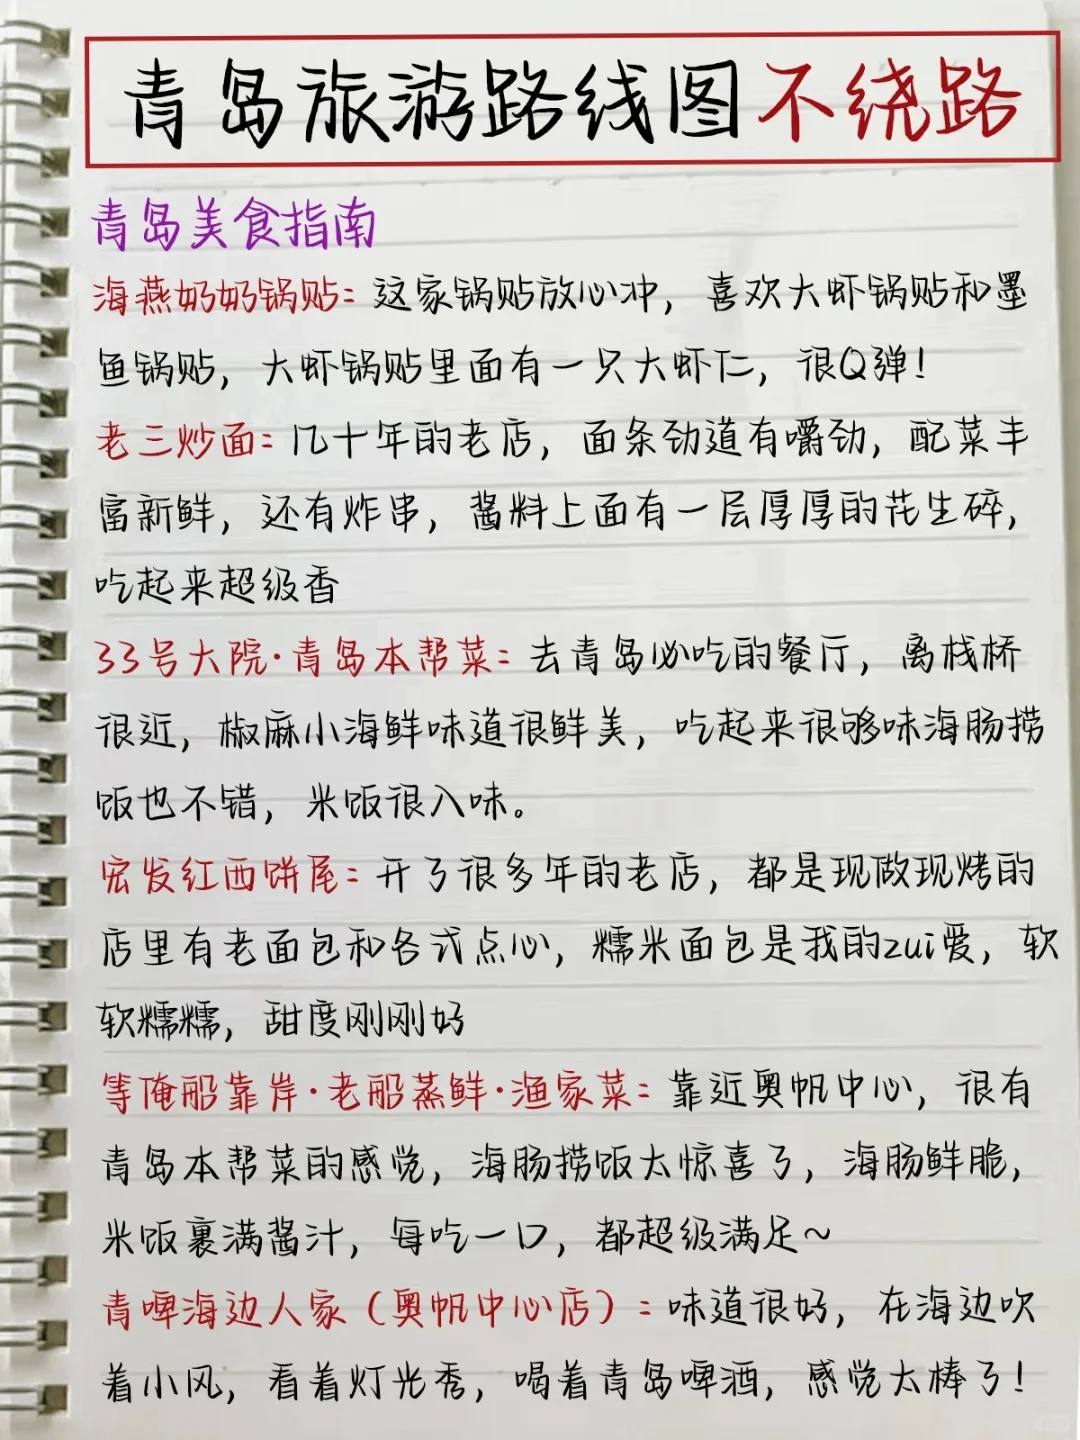 青岛旅游路线图不绕路
青岛美食指南
海燕奶奶锅贴:这家锅贴放心冲，喜欢大虾锅贴和墨
鱼锅贴，大虾锅贴里面有一只大虾仁，很Q弹!
老三炒面:几十年的老店，面条劲道有嚼劲，配菜丰
富新鲜，还有炸串，酱料上面有一层厚厚的花生碎，
吃起来超级香
33号大院·青岛本帮菜:去青岛必吃的餐厅，离栈桥
很近，椒麻小海鲜味道很鲜美，吃起来很够味海肠捞
饭也不错，米饭很入味。
宏发红西饼屋:开了很多年的老店，都是现做现烤的
店里有老面包和各式点心，糯米面包是我的zui爱，软
软糯糯，甜度刚刚好
等俺船靠岸·老船蒸鲜·渔家菜:靠近奥帆中心，很有
青岛本帮菜的感觉，海肠捞饭太惊喜了，海肠鲜脆，
米饭裹满酱汁，每吃一口，都超级满足~
青啤海边人家（奥帆中心店）:味道很好，在海边吹
着小风，看着灯光秀，喝着青岛啤酒，感觉太棒了!